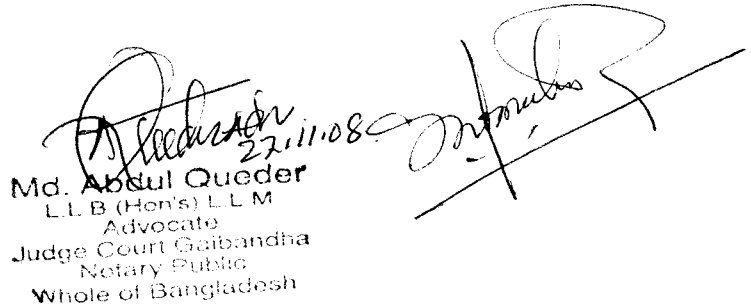 27.11.08
Md. Abdul Queder
L.L B (Hon's) L.L M
Advocate
Judge Court Gaibandha
Notary Public
Whole of Bangladesh